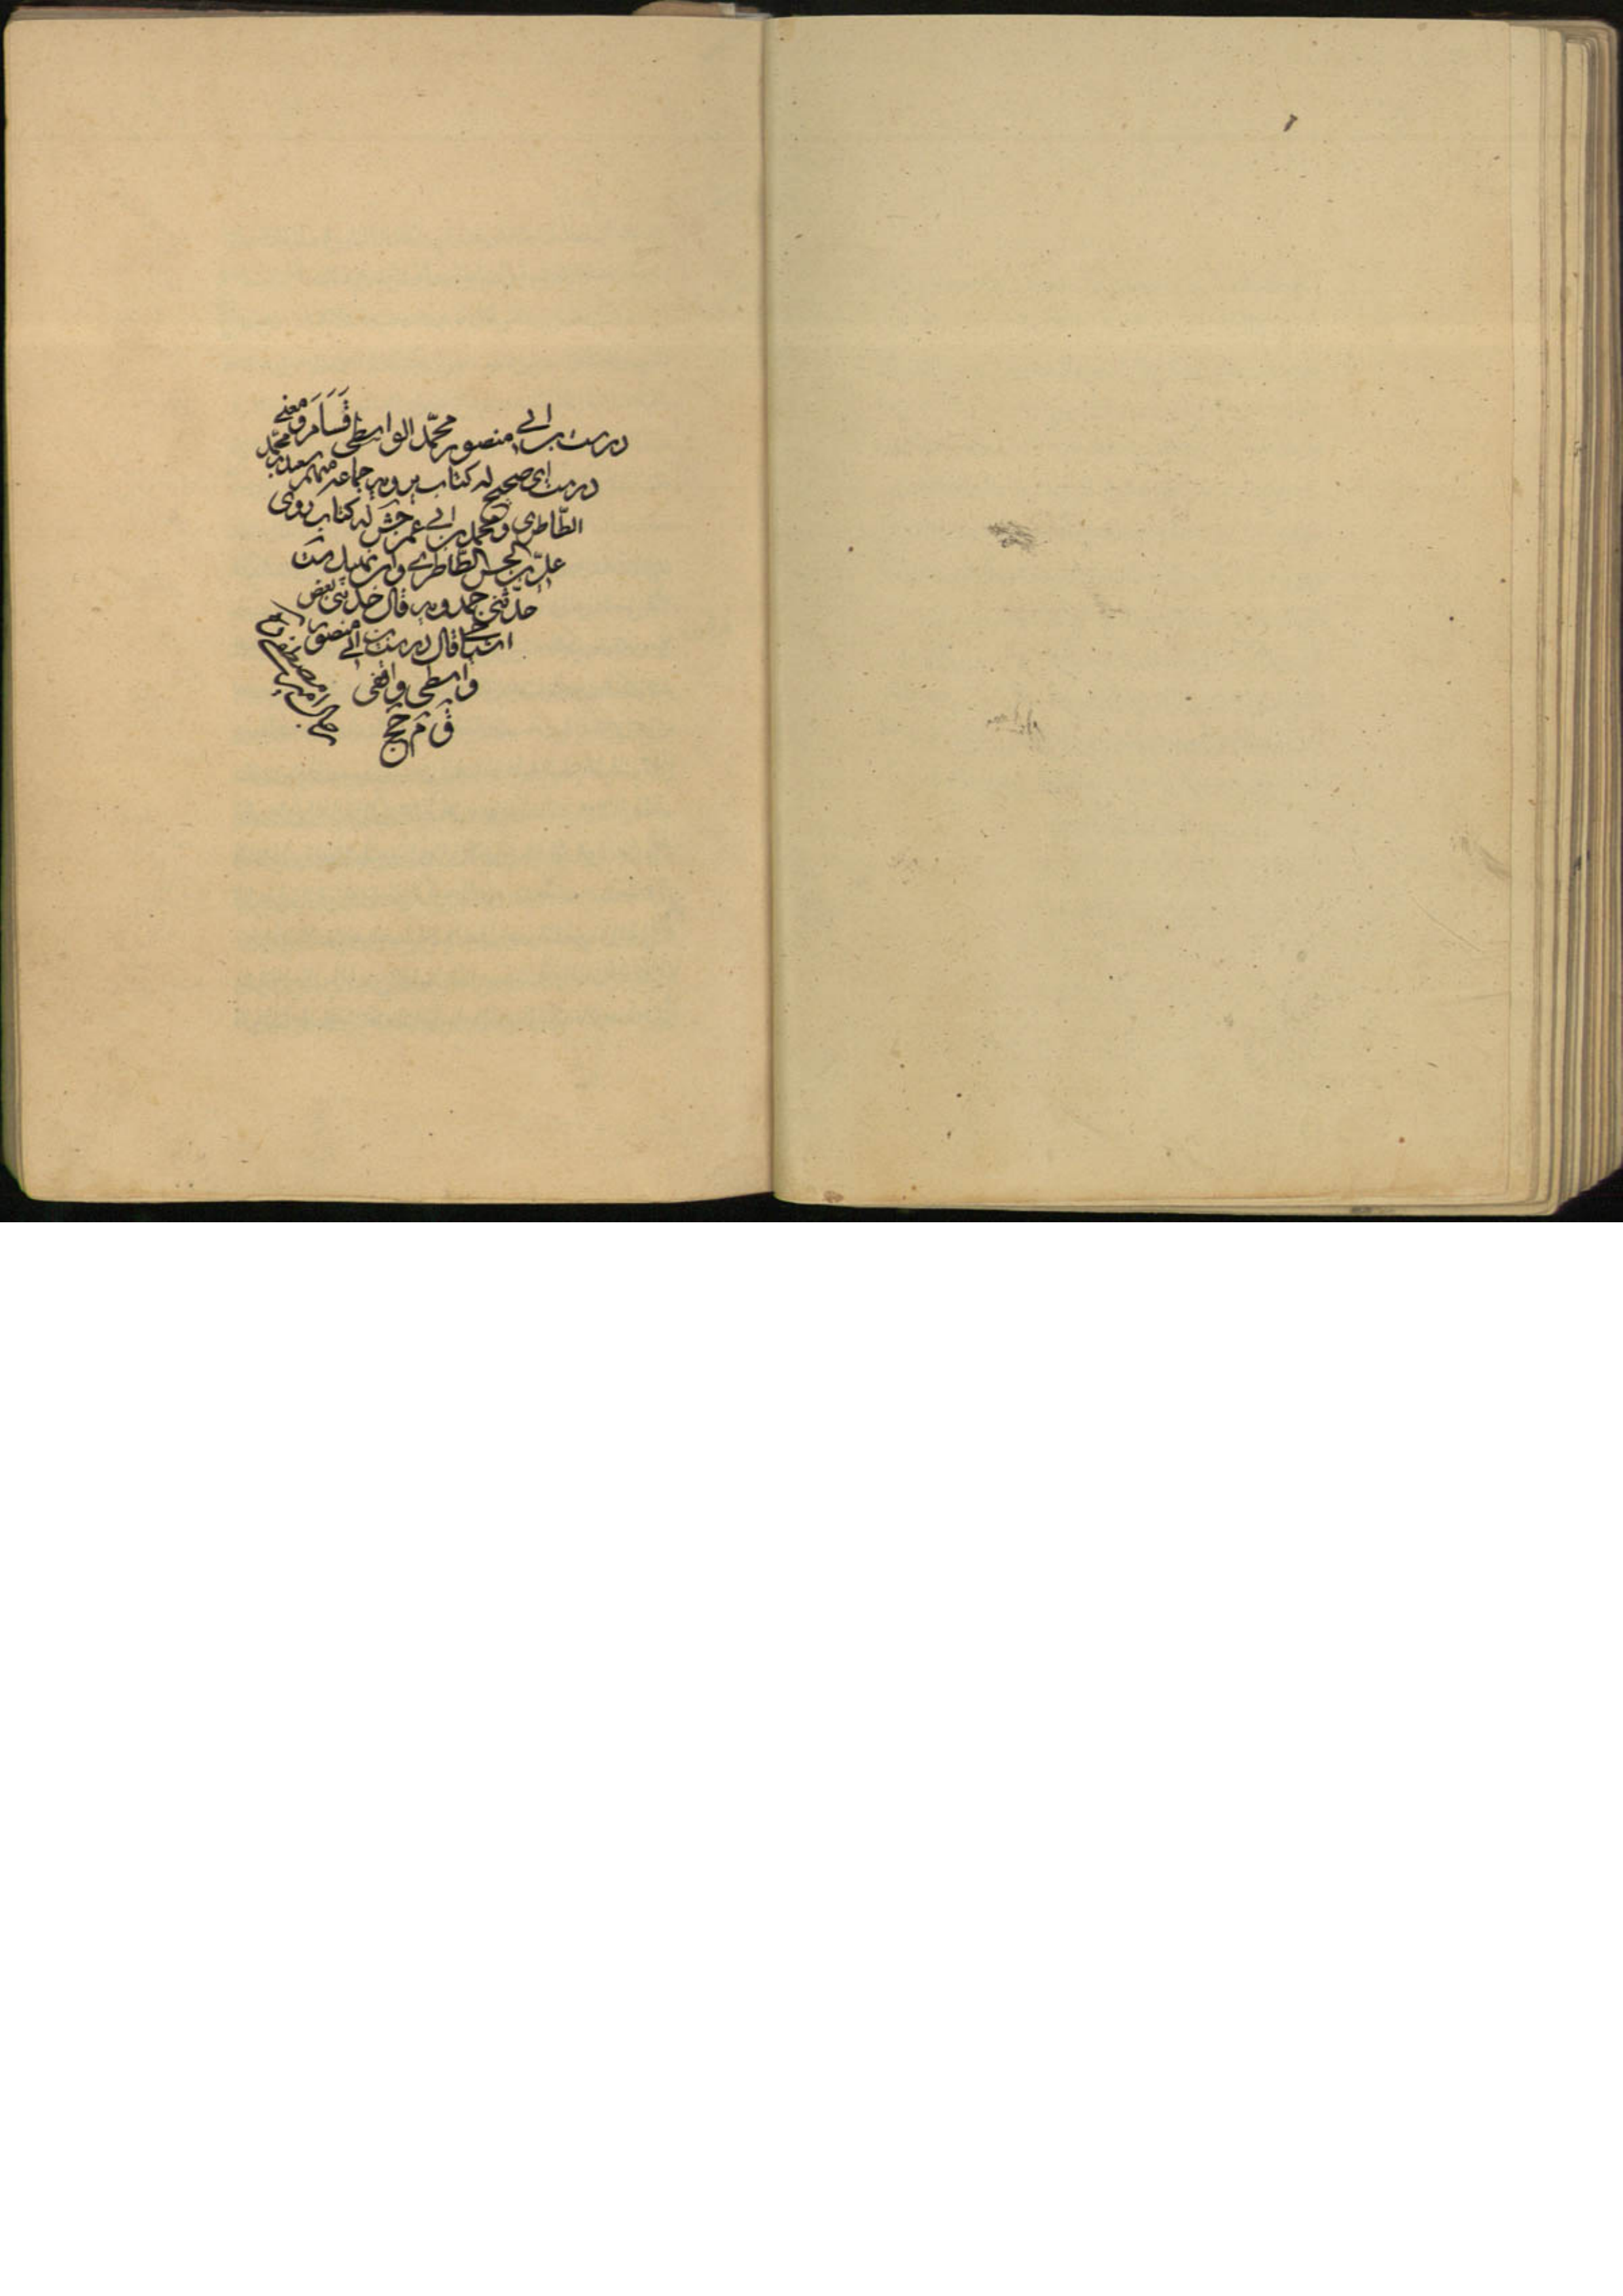 درست بن ابي منصور محمد الواسطي ق سا م ومعنى
درست اي صحيح له كتاب يرويه جماعة منهم سعد بن محمد
الطاطري ومحمد بن ابي عمير جش له كتاب روى
علي بن الحسن الطاطري وابن نهيك ست
حدثني حمدويه قال حدثني بعض
اشياخي قال درست بن ابي منصور
واسطي واقفي
ق م جخ
رجال امير مصطفى